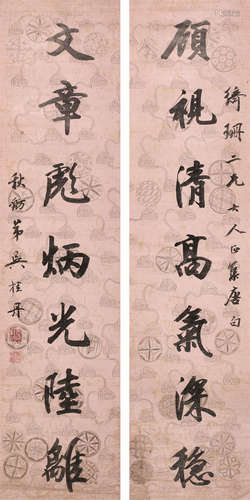 綺珊二兄大人正集唐句
顧視清髙氣深穩
文章彪炳光陸離
秋舫弟吳桂丹